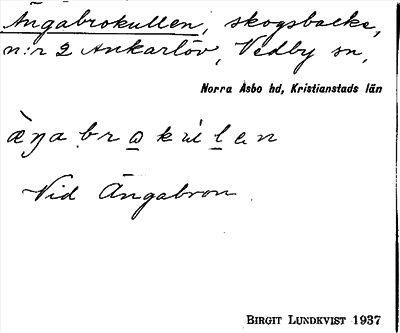 Ängabrokullen, skogsbacke,
n:r 2 Ankarlöv, Vedby sn,
Norra Åsbo hd, Kristianstads län
Vid Ängabron.
BIRGIT LUNDKVIST 1937